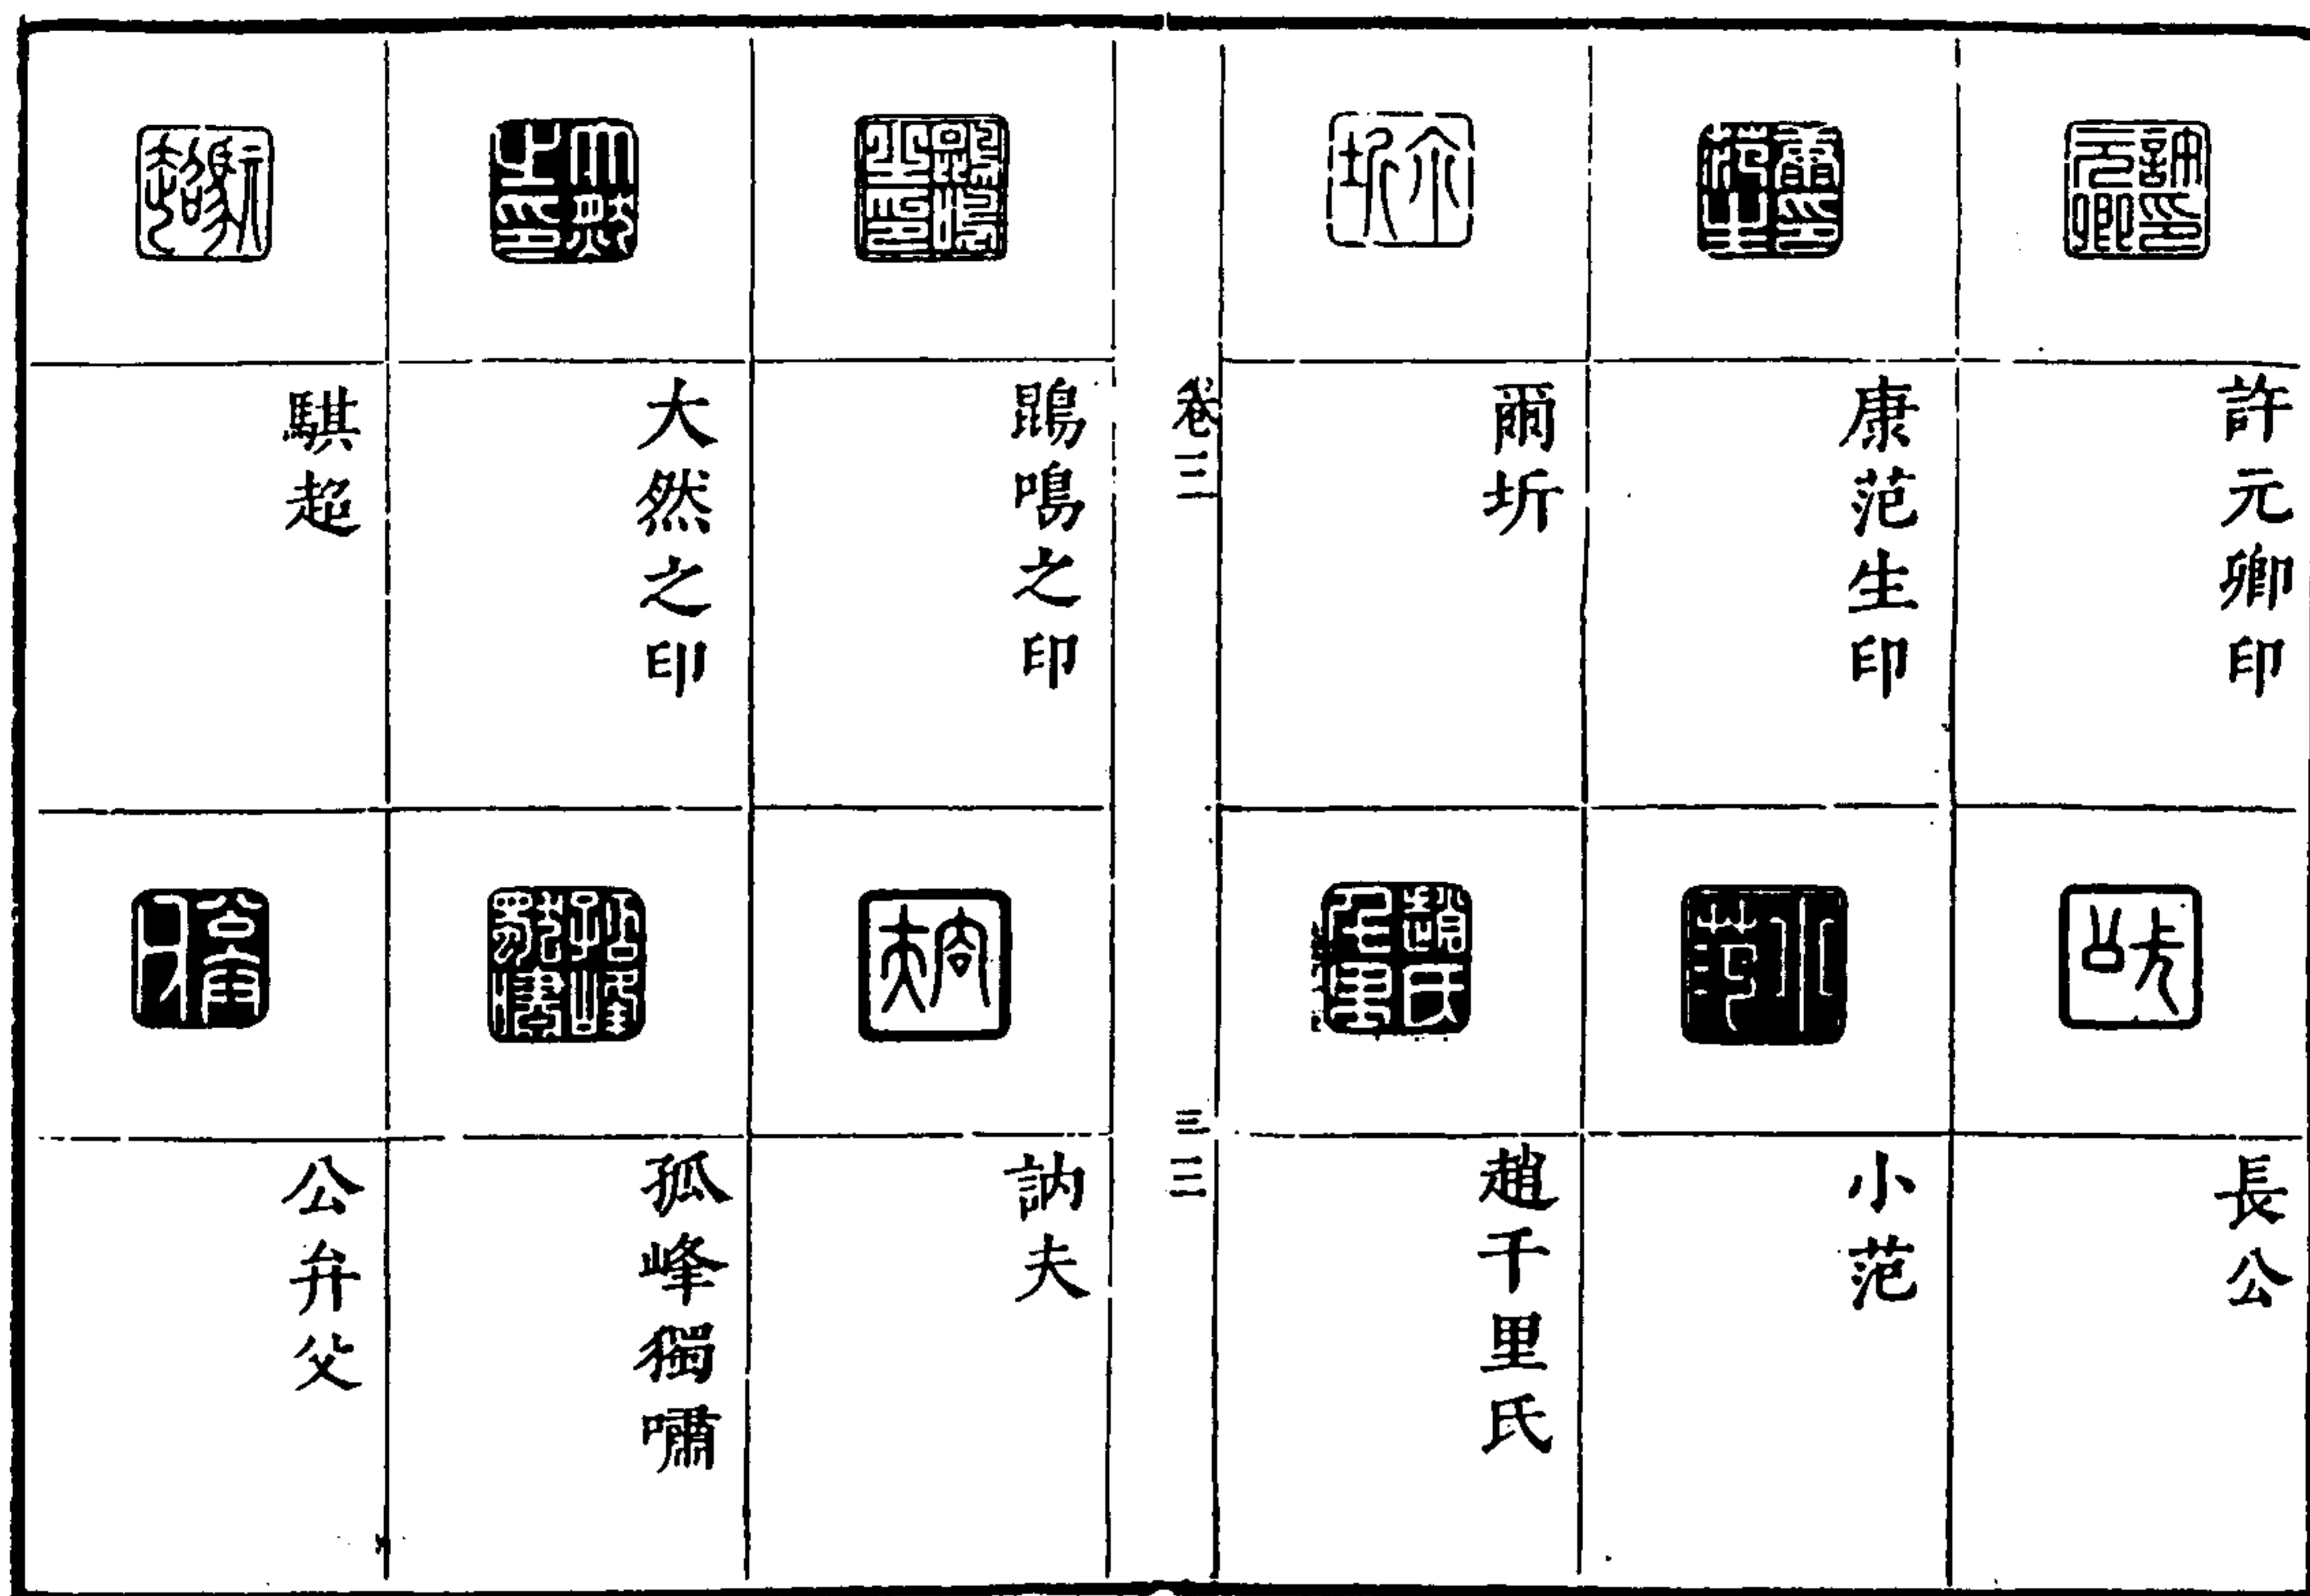 許元卿印
長公
康范生印
小范
爾圻
趙千里氏
卷三
三三
鵾鳴之印
訥夫
大然之印
孤峰獨嘯
騏超
公弁父